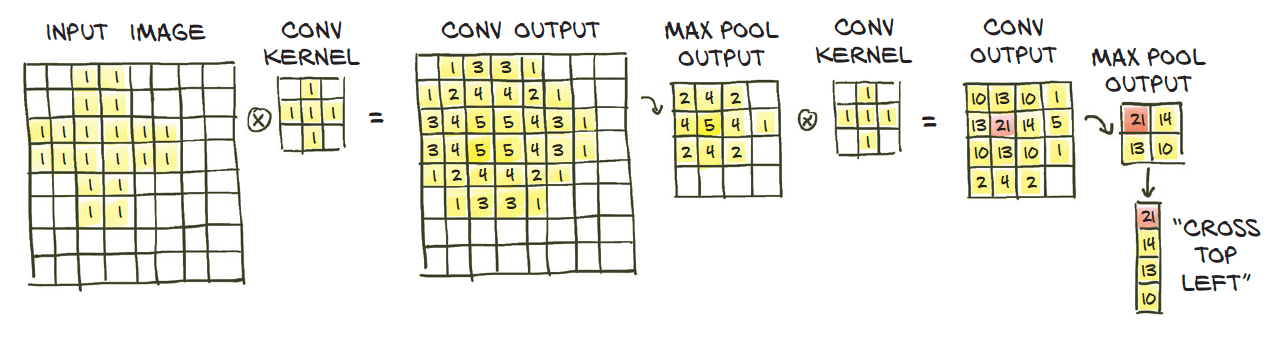 INPUT IMAGE
1 1
1 1
1 1 1 1 1 1
1 1 1 1 1 1
1 1
1 1
CONV
KERNEL
1
1 1 1
1
=
CONV OUTPUT
1 3 3 1
1 2 4 4 2 1
3 4 5 5 4 3 1
3 4 5 5 4 3 1
1 2 4 4 2 1
1 3 3 1
MAX POOL
OUTPUT
2 4 2
4 5 4 1
2 4 2
CONV
KERNEL
1
1 1 1
1
=
CONV
OUTPUT
10 13 10 1
13 21 14 5
10 13 10 1
2 4 2
MAX POOL
OUTPUT
21 14
13 10
21
14
13
10
"CROSS
TOP
LEFT"